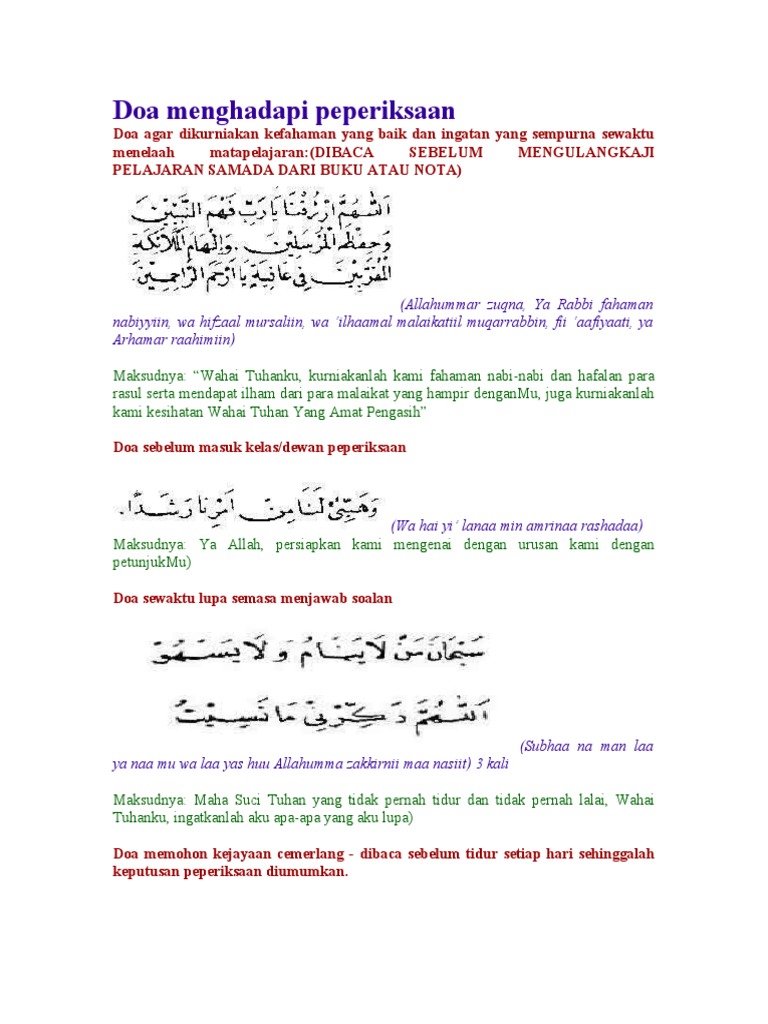 Doa menghadapi peperiksaan
Doa agar dikurniakan kefahaman yang baik dan ingatan yang sempurna sewaktu
menelaah matapelajaran:(DIBACA SEBELUM MENGULANGKAJI
PELAJARAN SAMADA DARI BUKU ATAU NOTA)
اَللّٰهُمَّ ارْزُقْنَا يَا رَبِّ فَهْمَ النَّبِيِّيْنَ
وَحِفْظَ الْمُرْسَلِيْنَ. وَإِلْهَامَ الْمَلَائِكَةِ
الْمُقَرَّبِيْنَ فِي عَافِيَةٍ يَا أَرْحَمَ الرَّاحِمِيْنَ.
(Allahummar zuqna, Ya Rabbi fahaman
nabiyyiin, wa hifzaal mursaliin, wa ‘ilhaamal malaikatiil muqarrabbin, fii ‘aafiyaati, ya
Arhamar raahimiin)
Maksudnya: “Wahai Tuhanku, kurniakanlah kami fahaman nabi-nabi dan hafalan para
rasul serta mendapat ilham dari para malaikat yang hampir denganMu, juga kurniakanlah
kami kesihatan Wahai Tuhan Yang Amat Pengasih”
Doa sebelum masuk kelas/dewan peperiksaan
وَهَيِّئْ لَنَا مِنْ اَمْرِنَا رَشَدًا.
(Wa hai yi’ lanaa min amrinaa rashadaa)
Maksudnya: Ya Allah, persiapkan kami mengenai dengan urusan kami dengan
petunjukMu)
Doa sewaktu lupa semasa menjawab soalan
سُبْحَانَ مَنْ لَا يَنَامُ وَلَا يَسْهُوْ
اَللّٰهُمَّ ذَكِّرْنِيْ مَا نَسِيْتُ
(Subhaa na man laa
ya naa mu wa laa yas huu Allahumma zakkirnii maa nasiit) 3 kali
Maksudnya: Maha Suci Tuhan yang tidak pernah tidur dan tidak pernah lalai, Wahai
Tuhanku, ingatkanlah aku apa-apa yang aku lupa)
Doa memohon kejayaan cemerlang - dibaca sebelum tidur setiap hari sehinggalah
keputusan peperiksaan diumumkan.